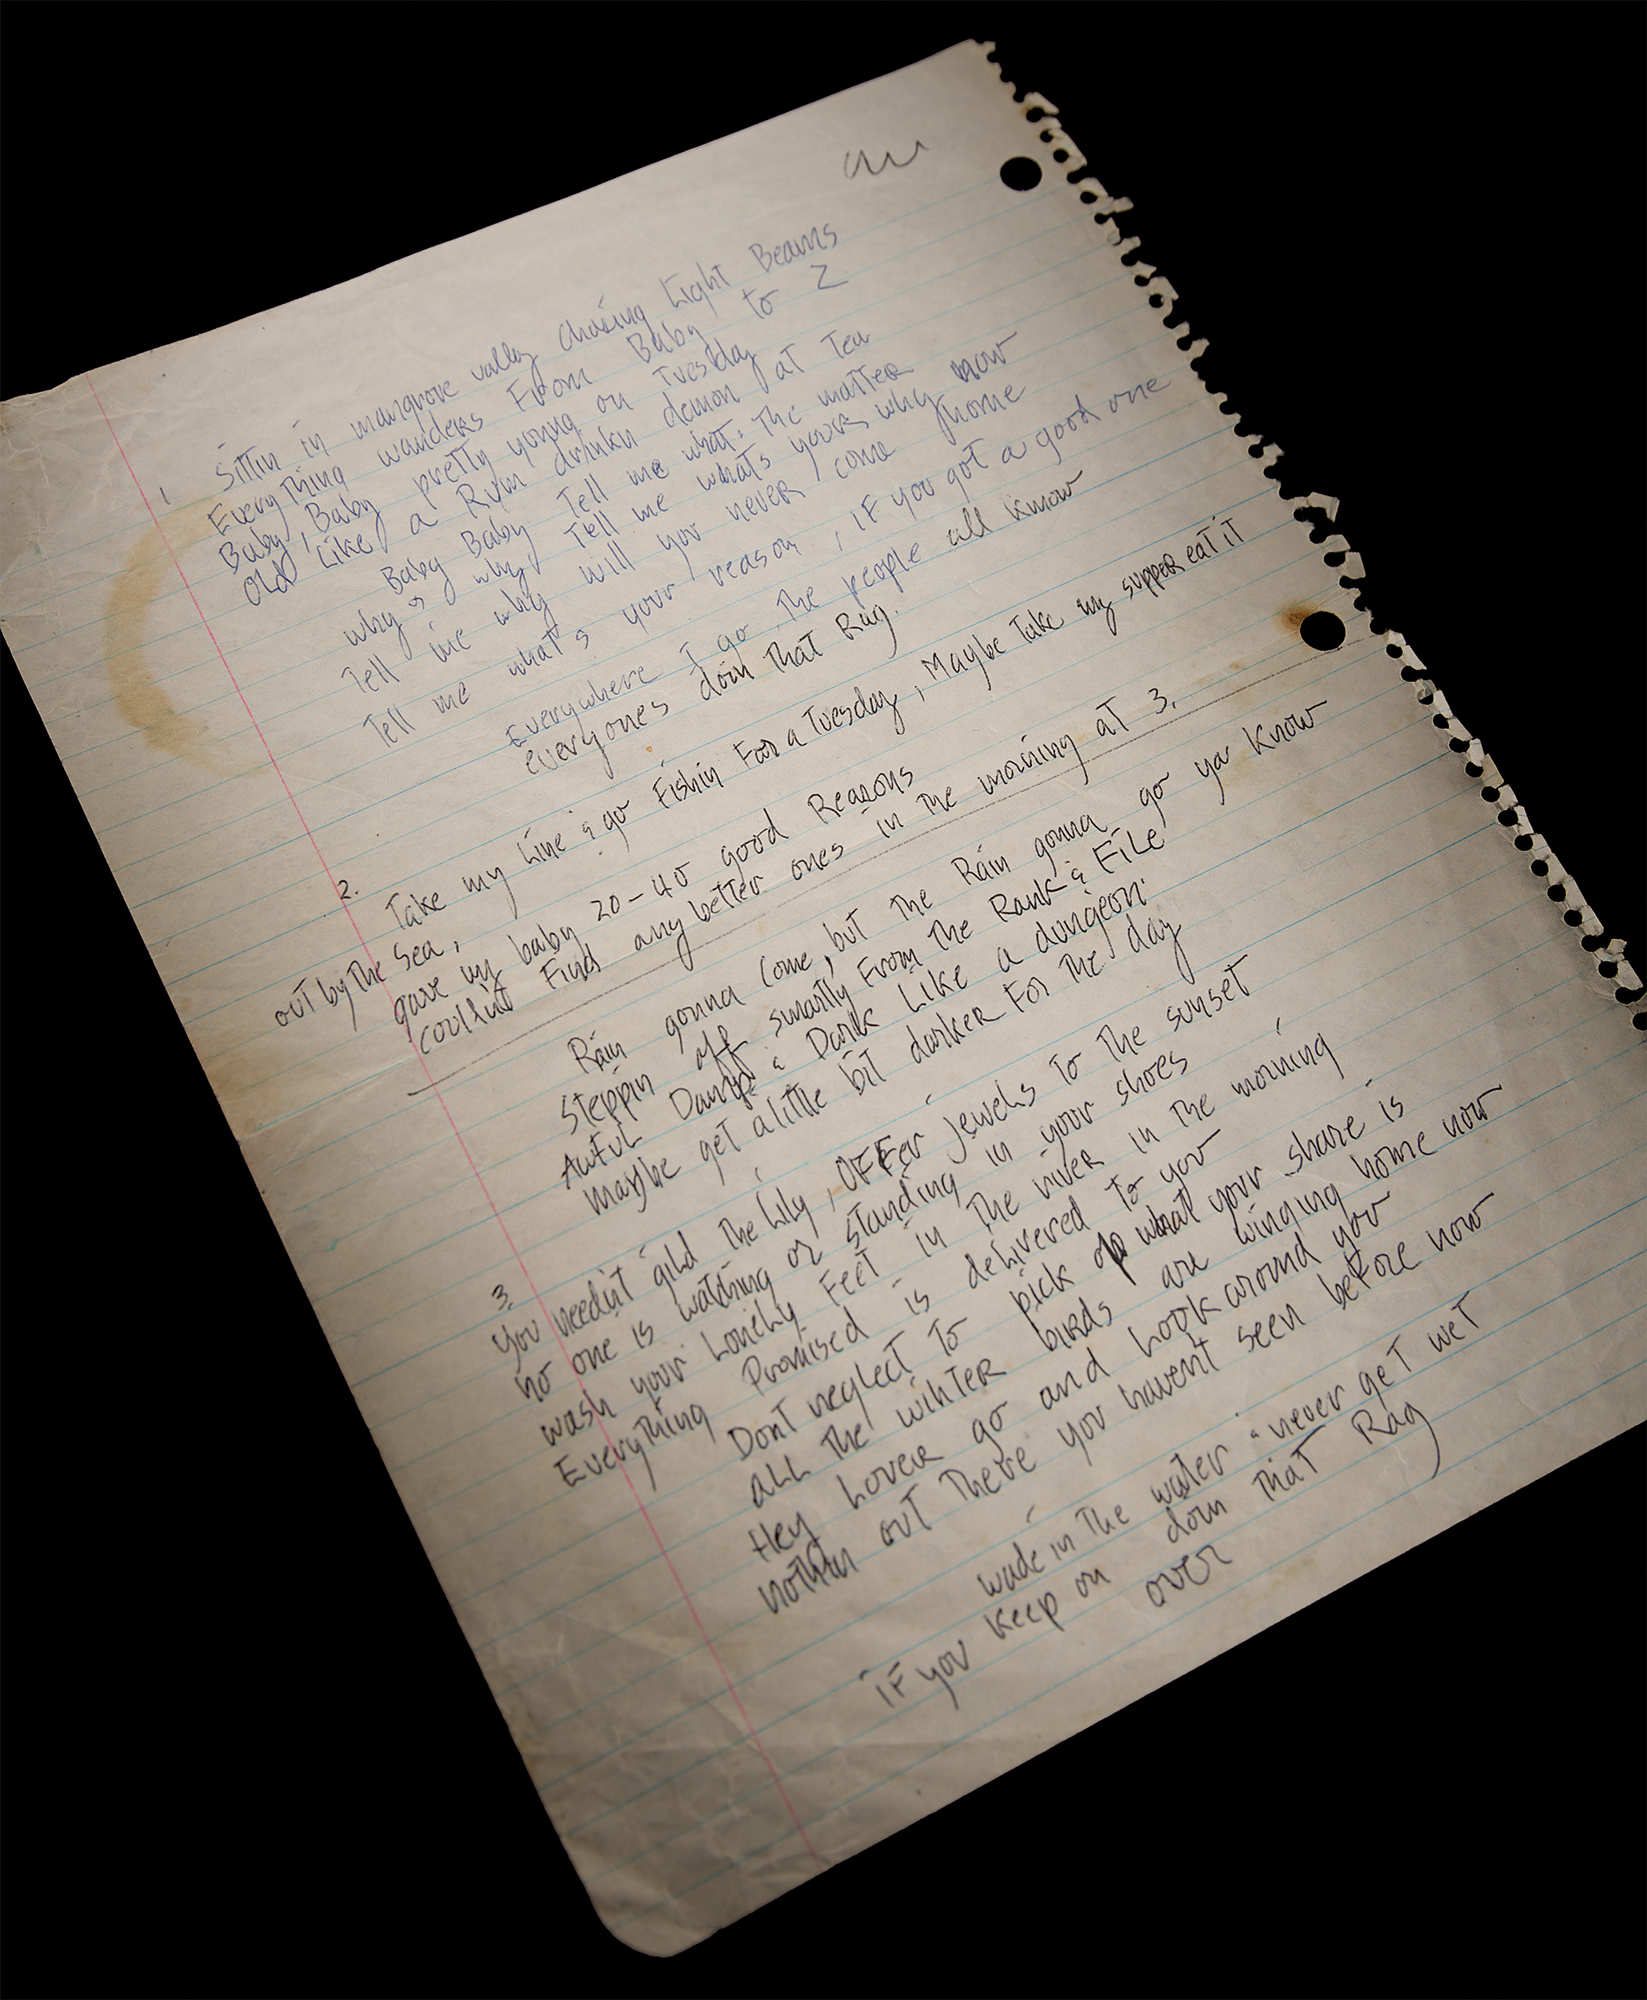 1 Sittin in mangrove vally chasing Light Beams
Everything wanders From Baby to Z
Baby, Baby pretty young on Tuesday
Old Like a Rum drinkn demon at Tea
Baby Baby Tell me what's the matter
why & why Tell me whats yours why now
Tell me why will you never come home
Tell me what's your reason, if you got a good one
Everywhere I go The people all know
everyones doin that Rag.
2. Take my Line & go Fishin For a Tuesday, Maybe Take my supper eat it
out by the Sea,
gave my baby 20-40 good Reasons
couldnt Find any better ones in the morning at 3.
Rain gonna come, but the Rain gonna go ya know
Steppin off smartly From the Rank & File
Awful Damp & Dark Like a dungeon
Maybe get a little bit darker For the day
3. You needn't gild the Lily, OFFer jewels to the sunset
no one is watching or standing in your shoes
wash your Lonely Feet in the river in the morning
Everything Promised is delivered to you
Dont neglect To pick up what your share is
all the winter birds are winging home now
Hey Lover go and Look around you
nothin out There you havent seen before now
wade in The water & never get wet
if you keep on doin that Rag
over